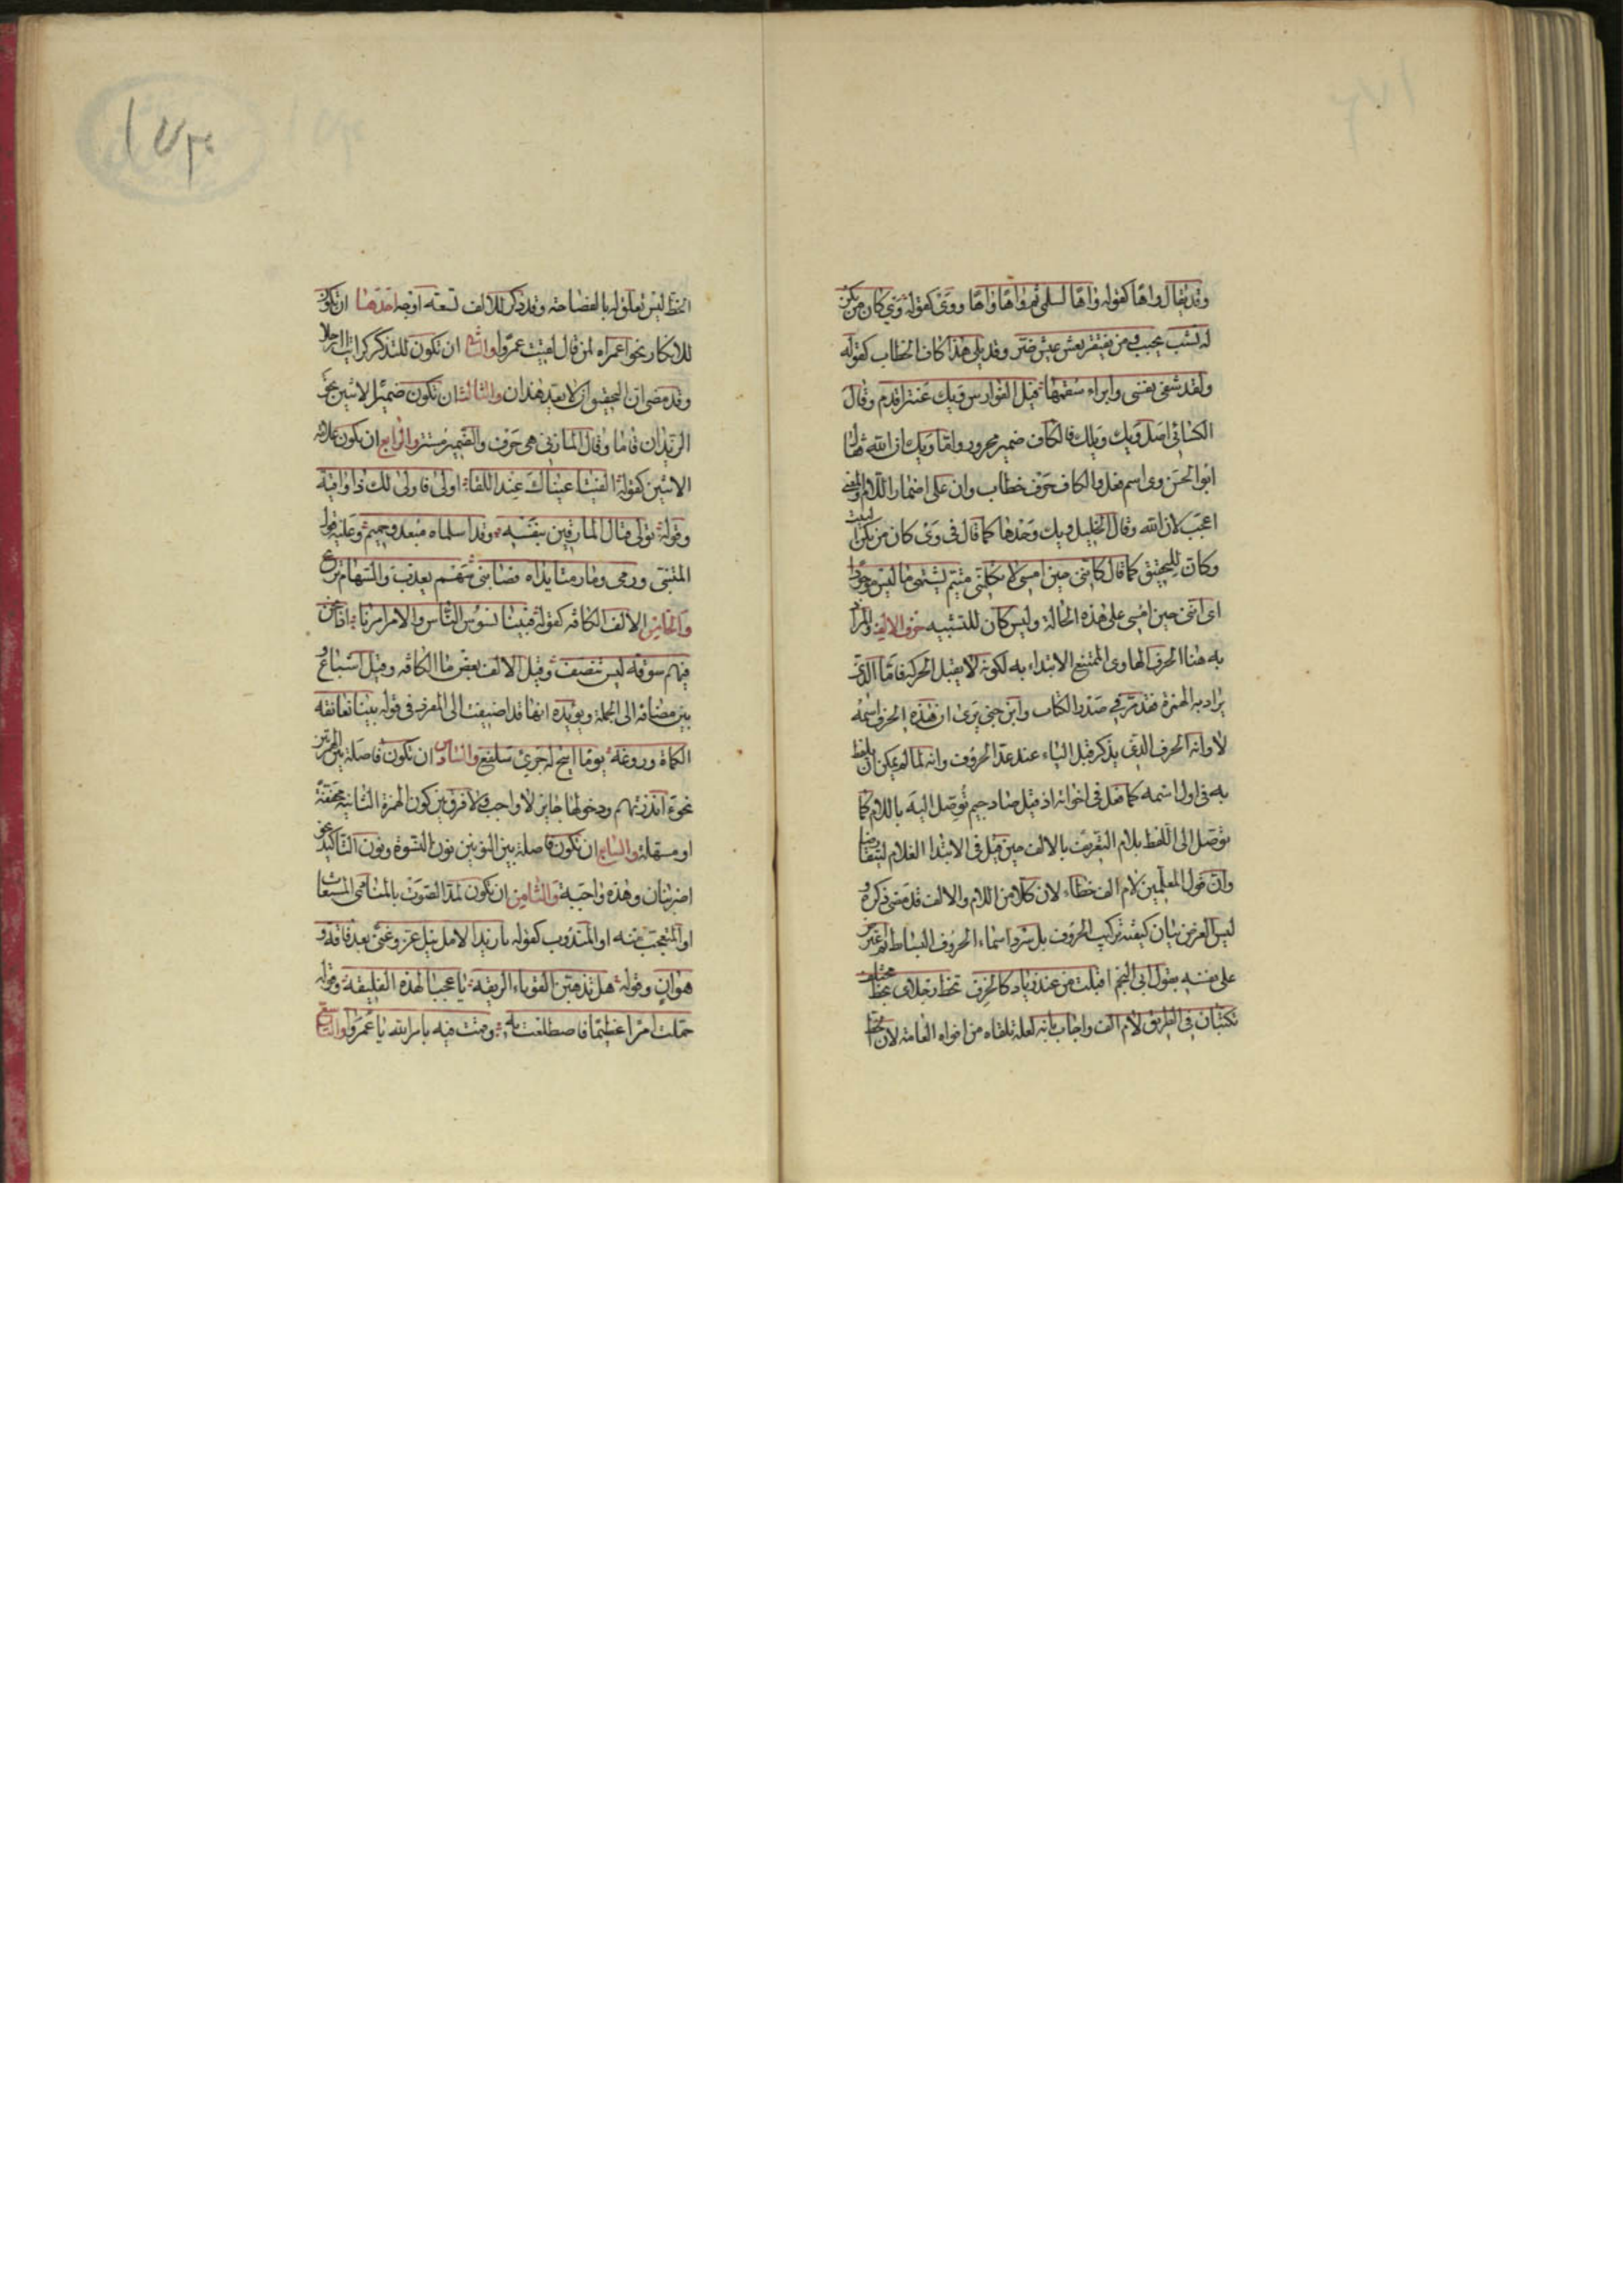 وقد يقال واها كقوله واها لسلمى ثم واها واها ووى كقوله وى كان من يكن
له نشب يحبب ومن يفتقر يعش عيش ضر وقد يلى هذا كاف الخطاب كقوله
ولقد شفى نفسى وابراء سقمها قيل الفوارس ويك عنتر اقدم وقال
الكسائى اصل ويك ويلك فالكاف ضمير مجرور واما ويك ان الله فقال
ابو الحسن وى اسم فعل والكاف حرف خطاب وان على اضمار اللام والمعنى
اعجب لان الله وقال الخليل ويك وحدها كما قال فى وى كان من يكن
وكان للتحقيق كما قال كاننى حين امسى لا تكلمنى متيم يشتهى ما ليس موجودا
اى اننى حين امسى على هذه الحالة وليس كان للتشبيه حرف الالف والمراد
به هنا الحرف الهاوى الممتنع الابتداء به لكونه لا يقبل الحركة فاما الذى
يراد به الهمزة فقد مر فى صدر الكتاب وابن جنى يرى ان هذه الحرف اسمه
لا وانه الحرف الذى يذكر قبل الياء عند عد الحروف وانه لما لم يمكن ان يلفظ
به فى اول اسمه كما فعل فى اخواته اذ قيل صاد جيم توصل اليه باللام كما
توصل الى اللفظ بلام التعريف بالالف حين قيل فى الابتداء الغلام ليتقارضا
وان قول المعلمين لام الف خطاء لان كلا من اللام والالف قد مضى ذكره و
ليس الغرض بيان كيفية تركيب الحروف بل سرد اسماء الحروف البسائط ثم اعترض
على نفسه بقول ابى النجم اقبلت من عند زياد كالخرف تخط رجلاى بخط مختلف
تكتبان فى الطريق لام الف واجاب بانه لعله تلقاه من افواه العامة لان الخط
الخط ليس تعلق له بالفصاحة وقد ذكر للالف تسعة اوجه احدها ان تكون
للانكار نحو اعمراه لمن قال لقيت عمرا والثانى ان تكون للتذكر كرايت الرجلا
وقد مضى ان التحقيق ان لا يعد هذان والثالث ان تكون ضمير الاثنين نحو
الزيدان قاما وقال المازنى هى حرف والضمير مستتر والرابع ان يكون علامة
الاثنين كقوله الفيتا عيناك عند القفا اولى فاولى لك ذا واقية
وقوله تولى قتال المارقين بنفسه وقد اسلماه مبعد وحميم وعليه قول
المتنبى ورمى وما رمتا يداه فصابنى سهم يعذب والسهام تريح
والخامس الالف الكافه كقوله فبينا نسوس الناس والامر امرنا اذا نحن
فيهم سوقة ليس ننصف وقيل الالف بعض ما الكافه وقيل اشباع و
بين مضافه الى الجملة ويؤيده انها قد اضيفت الى المفرد فى قوله بينا تعانقه
الكماة وروغه يوما اتيح له جرىء سلفع والسادس ان تكون فاصلة بين الهمزتين
نحو ءاانذرتهم ودخولها جايز لا واجب ولا فرق بين كون الهمزة الثانية محققة
او مسهلة والسابع ان تكون فاصلة بين النونين نون النسوة ونون التاكيد نحو
اضربنان وهذه واجبة والثامن ان تكون لمد الصوت بالمنادى المستغاث
او المتعجب منه او المندوب كقوله يا زيدا لامل نيل عز وغنى بعد فاقة و
هوان وقوله هل تذهبن القوباء الريقة يا عجبا لهذه الفليقة وقوله
حملت امرا عظيما فاصطلعت به وقمت فيه بامر الله يا عمرا والتاسع